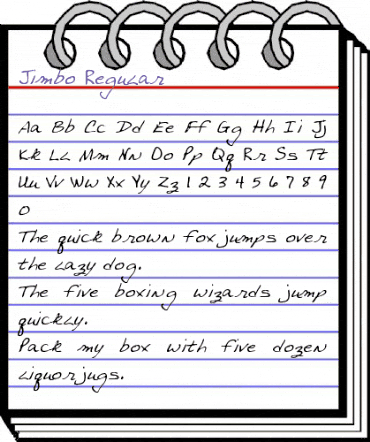 Jimbo Regular
Aa Bb Cc Dd Ee Ff Gg Hh Ii Jj
Kk Ll Mm Nn Oo Pp Qq Rr Ss Tt
Uu Vv Ww Xx Yy Zz 1 2 3 4 5 6 7 8 9
0
The quick brown fox jumps over
the lazy dog.
The five boxing wizards jump
quickly.
Pack my box with five dozen
liquor jugs.